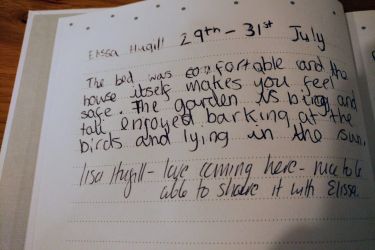 Elissa Hugill 29th - 31st July
The bed was comfortable and the
house itself makes you feel
safe. The garden is big and
tall, enjoyed barking at the
birds and lying in the sun.
lisa Hugill - love coming here - nice to be
able to share it with Elissa.